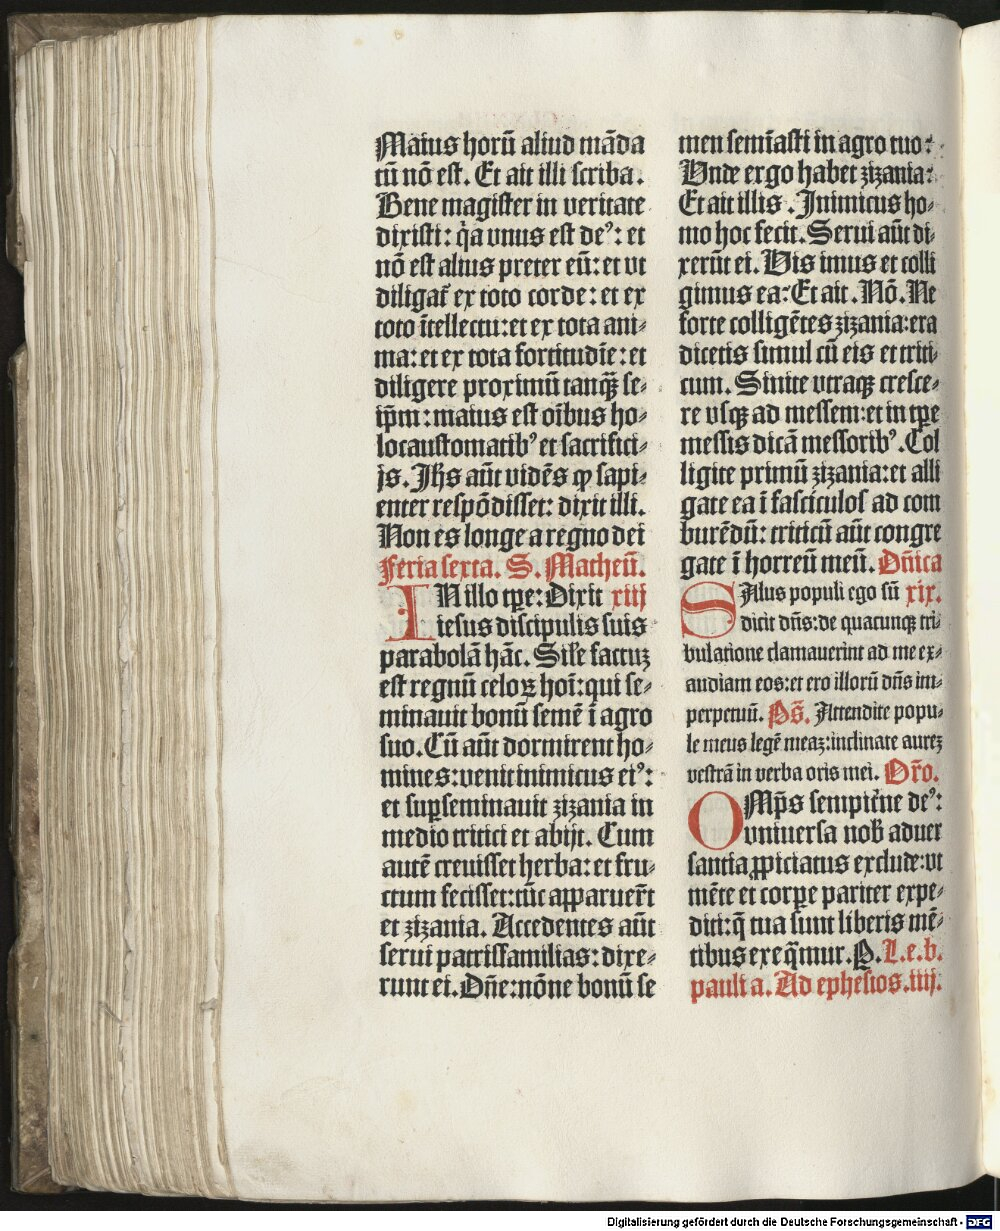 Maius horū aliud māda
tū nō est. Et ait illi scriba.
Bene magister in veritate
dixisti: q̄a vnus est deꝰ: et
nō est alius preter eū: et vt
diligat᷑ ex toto corde: et ex
toto ītellectu: et ex tota ani⸗
ma: et ex tota fortitudīe: et
diligere proximū tanq̄ se⸗
ip̄m: maius est oībus ho⸗
locaustomatibꝰ et sacrifici⸗
js. Jhs aūt vidēs ꝙ sapi⸗
enter respōdisset: dixit illi.
Non es longe a regno dei
Feria sexta. S. Matheū.
IN illo tꝑe: Dixit xiij
iesus discipulis suis
parabolā hāc. Sil̄e factuꝫ
est regnū celoꝝ hoī: qui se⸗
minauit bonū semē ī agro
suo. Cū aūt dormirent ho⸗
mines: venit inimicus eiꝰ:
et suꝑseminauit zizania in
medio tritici et abijt. Cum
autē creuisset herba: et fru⸗
ctum fecisset: tūc apparuer̄t
et zizania. Accedentes aūt
serui patrisfamilias: dixe⸗
runt ei. Dn̄e: nōne bonū se
men semīasti in agro tuo:
Vnde ergo habet zizania:
Et ait illis. Inimicus ho⸗
mo hoc fecit. Serui aūt di⸗
xerūt ei. Vis imus et colli
gimus ea: Et ait. Nō. Ne
forte colligētes zizania: era
dicetis simul cū eis et triti⸗
cum. Sinite vtraqꝫ cresce⸗
re vsqꝫ ad messem: et in tꝑe
messis dicā messoribꝰ. Col
ligite primū zizania: et alli
gate ea ī fasciculos ad com
burēdū: triticū aūt congre
gate ī horreū meū. Dn̄ica
SAlus populi ego sū xix.
dicit dn̄s: de quacunqꝫ tri⸗
bulatione clamauerint ad me ex⸗
audiam eos: et ero illorū dn̄s im⸗
perpetuū. Ps̄. Attendite popu⸗
le meus legē meaꝫ: inclinate aureꝫ
vestrā in verba oris mei. Or̄o.
OMp̄s sempitern̄e deꝰ:
vniuersa nob̄ aduer
santia ꝓpiciatus exclude: vt
mēte et corꝑe pariter expe⸗
diti: q̄ tua sunt liberis mē⸗
tibus exeq̄mur. P. L. e. b.
pauli a. Ad ephesios. iiij.
Digitalisierung gefördert durch die Deutsche Forschungsgemeinschaft - DFG